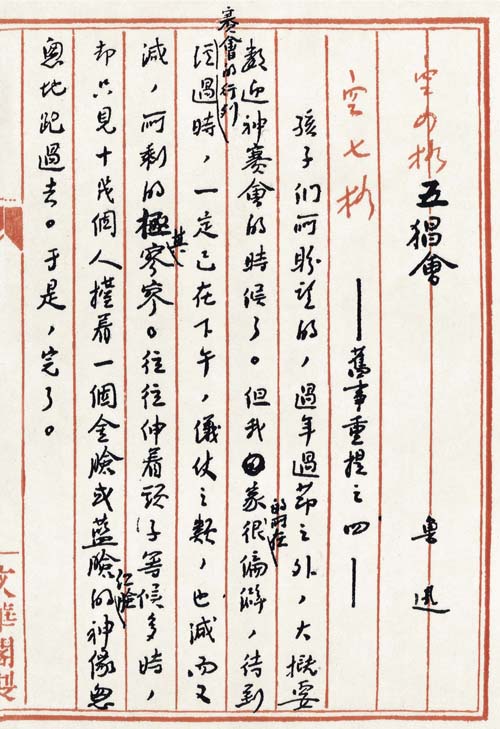 空四格 五猖會 魯迅
空七格 ——舊事重提之四——
孩子們所盼望的，過年過節之外，大概要
數迎神賽會的時候了。但我家的所在很偏僻，待到
賽會的行列經過時，一定已在下午，儀仗之類，也減而又
減，所剩的極其寥寥。往往伸着頸子等候多時，
却只見十幾個人擡着一個金臉或藍臉紅臉的神像匆
匆地跑過去。于是，完了。
文華閣製